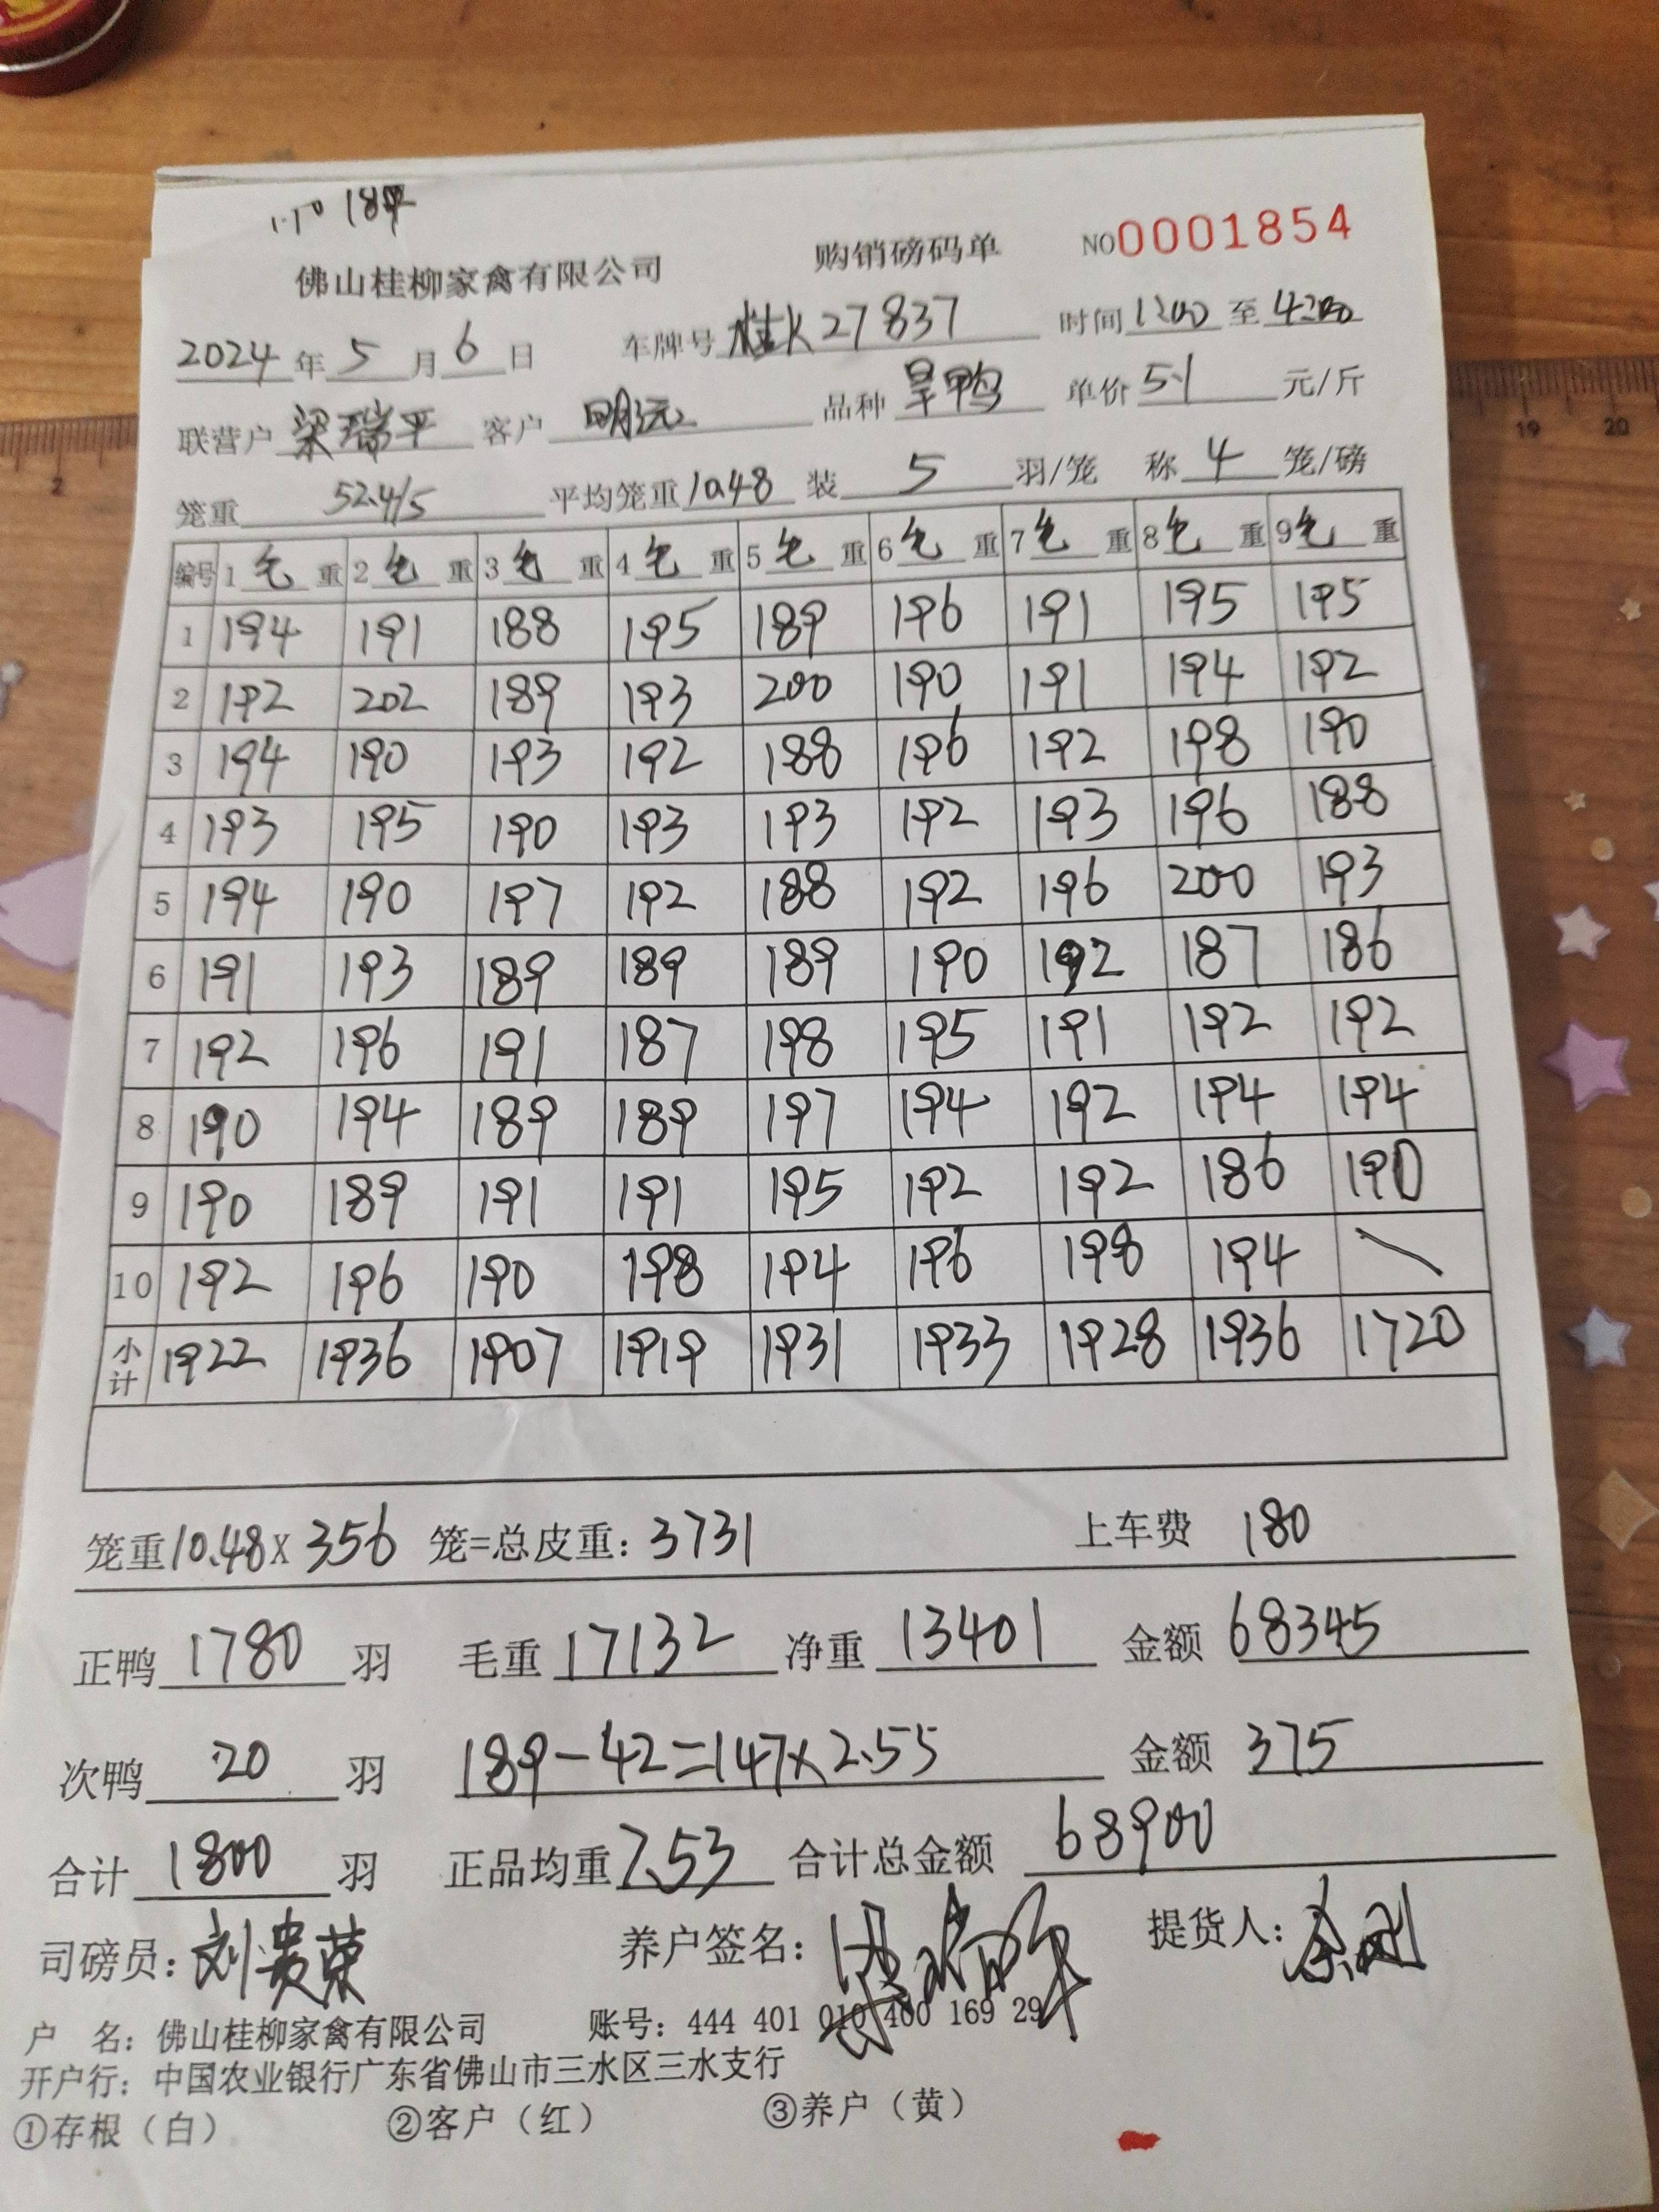 189
佛山桂柳家禽有限公司 购销磅码单 NO0001854
2024年5月6日 车牌号 桂K27837 时间1200至4200
联营户 梁瑞平 客户 明远 品种 旱鸭 单价 5.1 元/斤
笼重 52.4/5 平均笼重 10.48 装 5 羽/笼 称 4 笼/磅
编号 1毛重 2毛重 3毛重 4毛重 5毛重 6毛重 7毛重 8毛重 9毛重
1 194 191 188 195 189 196 191 195 195
2 192 202 189 193 200 190 191 194 192
3 194 190 193 192 188 196 192 198 190
4 193 195 190 193 193 192 193 196 188
5 194 190 197 192 188 192 196 200 193
6 191 193 189 189 189 190 192 187 186
7 192 196 191 187 198 195 191 192 192
8 190 194 189 189 197 194 192 194 194
9 190 189 191 191 195 192 192 186 190
10 192 196 190 198 194 196 198 194 \
小计 1922 1936 1907 1919 1931 1933 1928 1936 1720
笼重10.48X 356 笼=总皮重: 3731 上车费 180
正鸭 1780 羽 毛重 17132 净重 13401 金额 68345
次鸭 20 羽 189-42=147x2.55 金额 375
合计 1800 羽 正品均重 7.53 合计总金额 68900
司磅员: 刘贵荣 养户签名: 提货人:
户 名: 佛山桂柳家禽有限公司 账号: 444 401 010 400 169 29
开户行: 中国农业银行广东省佛山市三水区三水支行
①存根（白） ②客户（红） ③养户（黄）